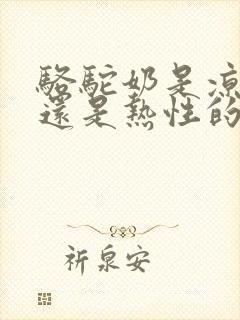 駱駝奶是涼
還是熱性的
祈泉安